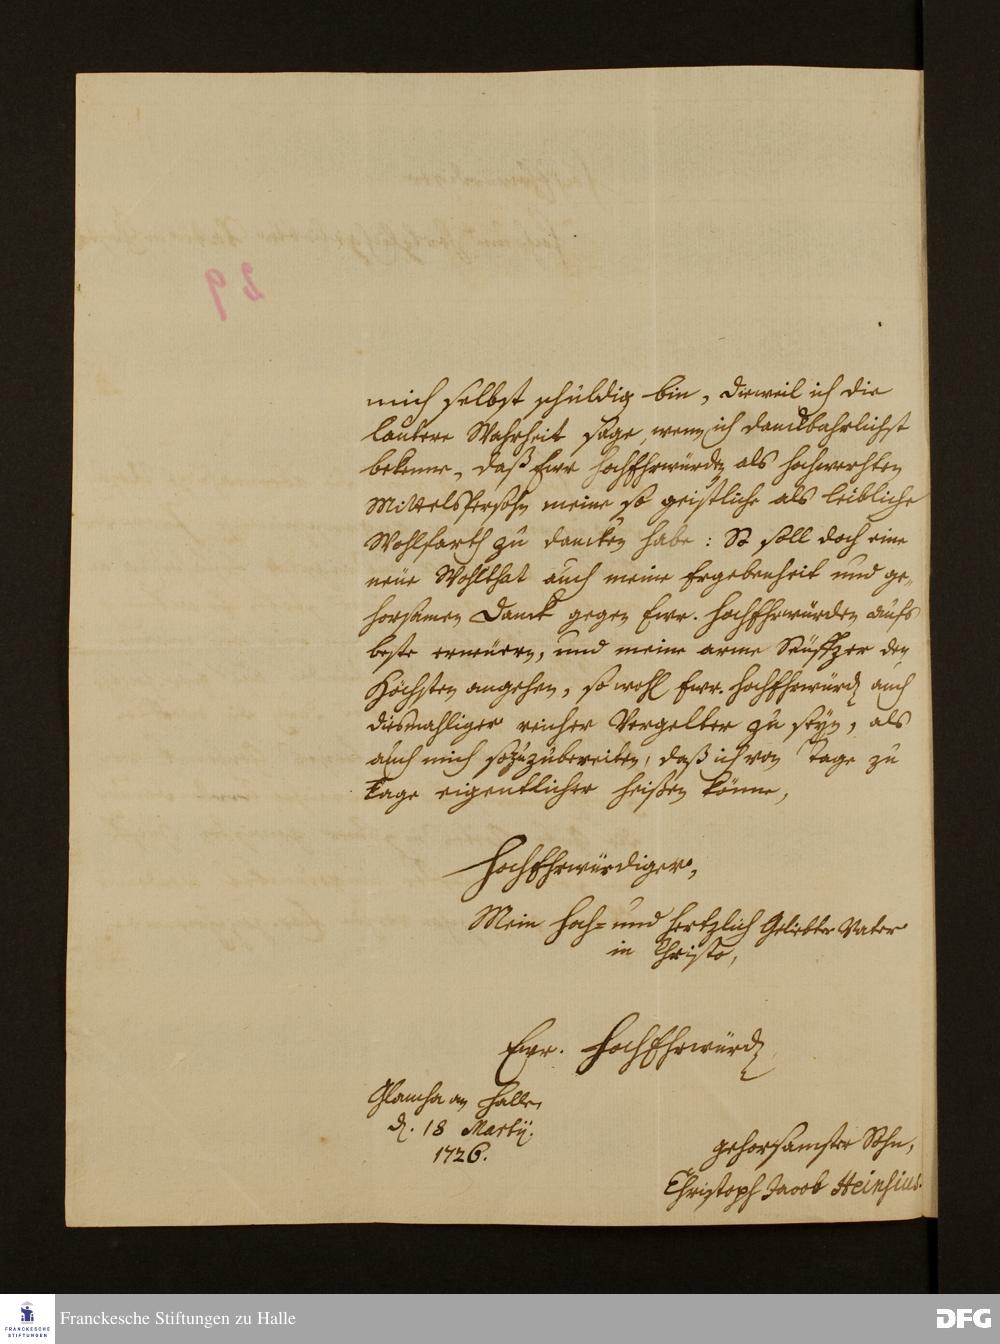 mich selbst schuldig bin, dieweil ich die
lautere Wahrheit sage, wenn ich danckbahrlichst
bekenne, daß Ewr HochEhrwürden als hochwerthen
MittelsPersohn meine so geistliche als leibliche
Wohlfarth zu dancken habe: So soll doch eine
neüe Wohlthat auch meine Ergebenheit und ge-
horsamen Danck gegen Ewr. HochEhrwürden aufs
beste erneüern, und meine arme Seüfftzer den
Höchsten angehen, so wohl Ewr. HochEhrwürd. auch
diesmahliger reicher Vergelter zu seyn, als
auch mich so zuzubereiten, daß ich von Tage zu
Tage eigentlicher heißen könne,
HochEhrwürdiger,
Mein Hoch- und hertzlich Geliebter Vater
in Christo,
Ewr. HochEhrwürd.
Glaucha an Halle,
d. 18 Martij.
1726.
gehorsamster Sohn,
Christoph Jacob Heinsius.
Franckesche Stiftungen zu Halle
FRANCKESCHE
STIFTUNGEN
DFG